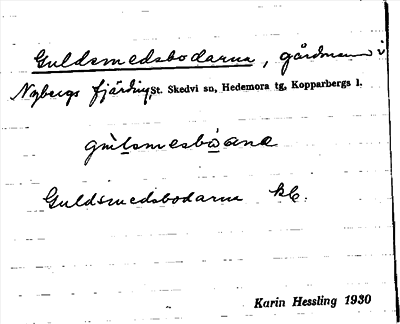 Guldsmedsbodarna, gårdnamn i
Nybergs fjärding, St. Skedvi sn, Hedemora tg, Kopparbergs l.
gùlsmesbòana
Guldsmedsbodarna kb.
Karin Hessling 1930